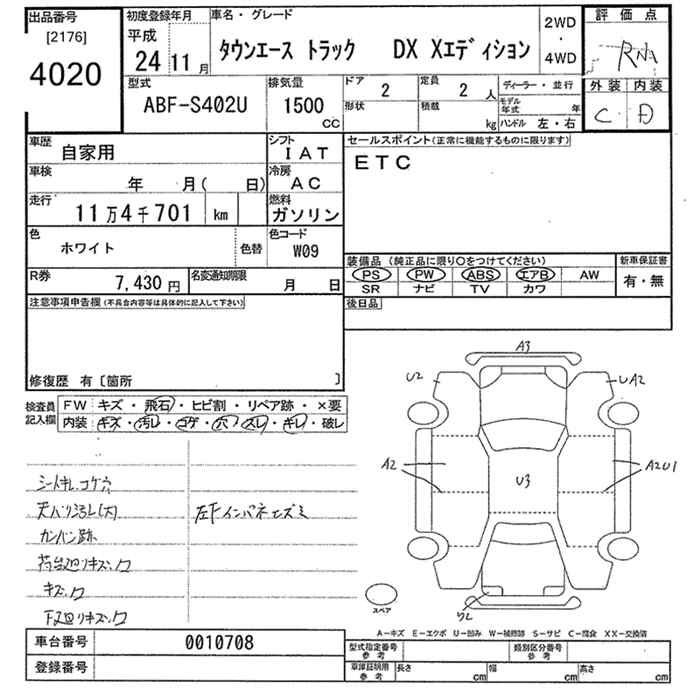 出品番号
[2176]
4020
初度登録年月
平成
24 11 月
車名・グレード
タウンエース トラック DX Xエディション
2WD
・
4WD
評価点
外装 内装
C D
型式
ABF-S402U
排気量
1500
CC
ドア
2
定員
2 人
形状
積載
kg
ディーラー・並行
モデル年式 年
ハンドル 左・右
車歴
自家用
シフト
IAT
車検
年 月( 日)
冷房
AC
走行
11万4千701 km
燃料
ガソリン
色
ホワイト
色替
色コード
W09
R券
7,430 円
名変通知期限
月 日
セールスポイント(正常に機能するものに限ります)
ETC
装備品 (純正品に限り○をつけてください)
PS PW ABS エアB AW
SR ナビ TV カワ
新車保証書
有・無
後日品
注意事項申告欄(不具合内容等は具体的に記入して下さい)
修復歴 有〔箇所 〕
検査員
記入欄
FW キズ・飛石・ヒビ割・リペア跡・×要
内装 キズ・汚レ・コゲ・穴・スレ・キレ・破レ
シートキレ コゲ穴
カンバン跡
荷台廻りキズ、ワ
キズ、ワ
下廻りキズ、ワ
A3
U2
UA2
A2
U3
A2U1
ワレ
スペア
A-キズ E-エクボ U-凹み W-補修跡 S-サビ C-腐食 XX-交換済
車台番号 0010708
登録番号
型式指定番号
参考
類別区分番号
参考
車庫証明用
参考
長さ cm
幅 cm
高さ cm